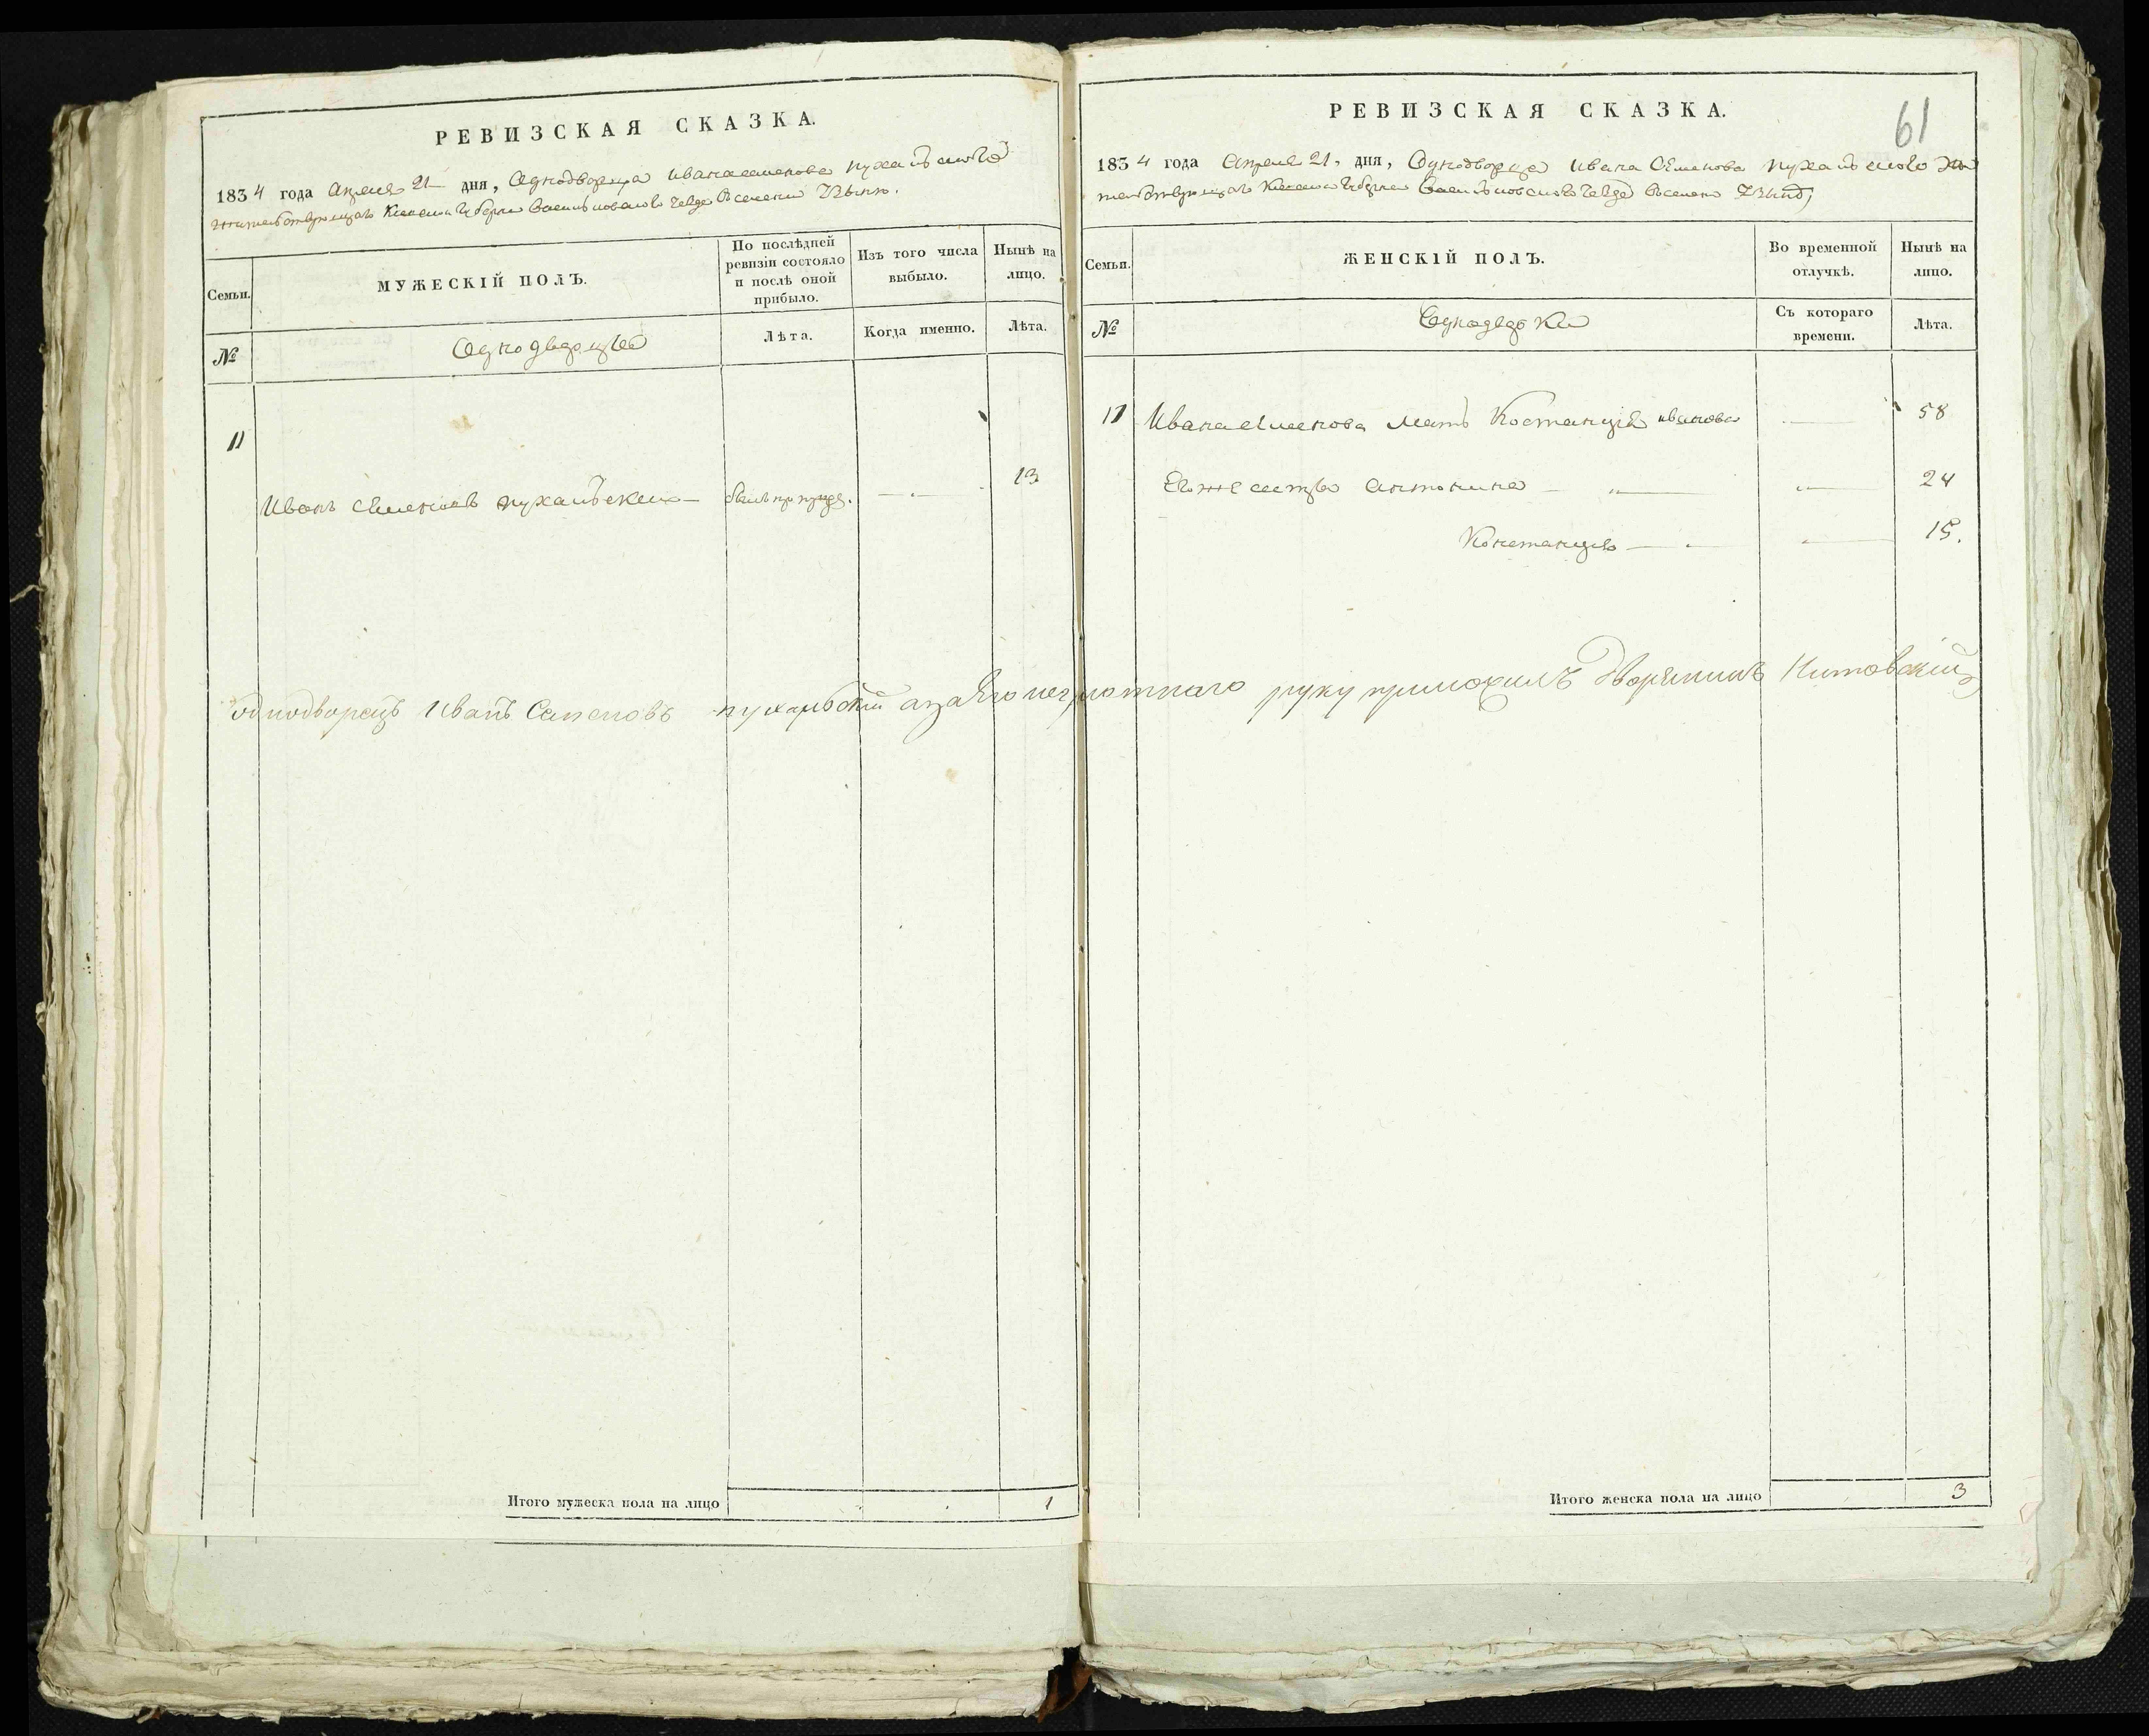 РЕВИЗСКАЯ СКАЗКА.
1834 года Апреля 21 дня, Однодворца Ивана Семенова Пухальского
жительствующаго Киевской Губернии Васильковского уезда В селении
Семьи.
МУЖЕСКІЙ ПОЛЪ.
По послѣдней ревизіи состояло и послѣ оной прибыло.
Изъ того числа выбыло.
Нынѣ на лицо.
№
Однодворцы
Лѣта.
Когда именно.
Лѣта.
11
Иванъ Семеновъ Пухальский — — 13
Итого мужеска пола на лицо 1
61
РЕВИЗСКАЯ СКАЗКА.
1834 года Апреля 21 дня, Однодворца Ивана Семенова Пухальского жи
тельствующаго Киевской Губернии Васильковского уезда В селении
Семьи.
ЖЕНСКІЙ ПОЛЪ.
Во временной отлучкѣ.
Нынѣ на лицо.
№
Однодворки
Съ котораго времени.
Лѣта.
11 Ивана Семенова мать Костанция Иванова — 58
Его же сестры Антонина — " — " — 24
Констанция — " — " — 15.
однодворецъ Иванъ Семеновъ Пухальский а за Его неграмотнаго руку приложилъ Дворянинъ
Итого женска пола на лицо 3